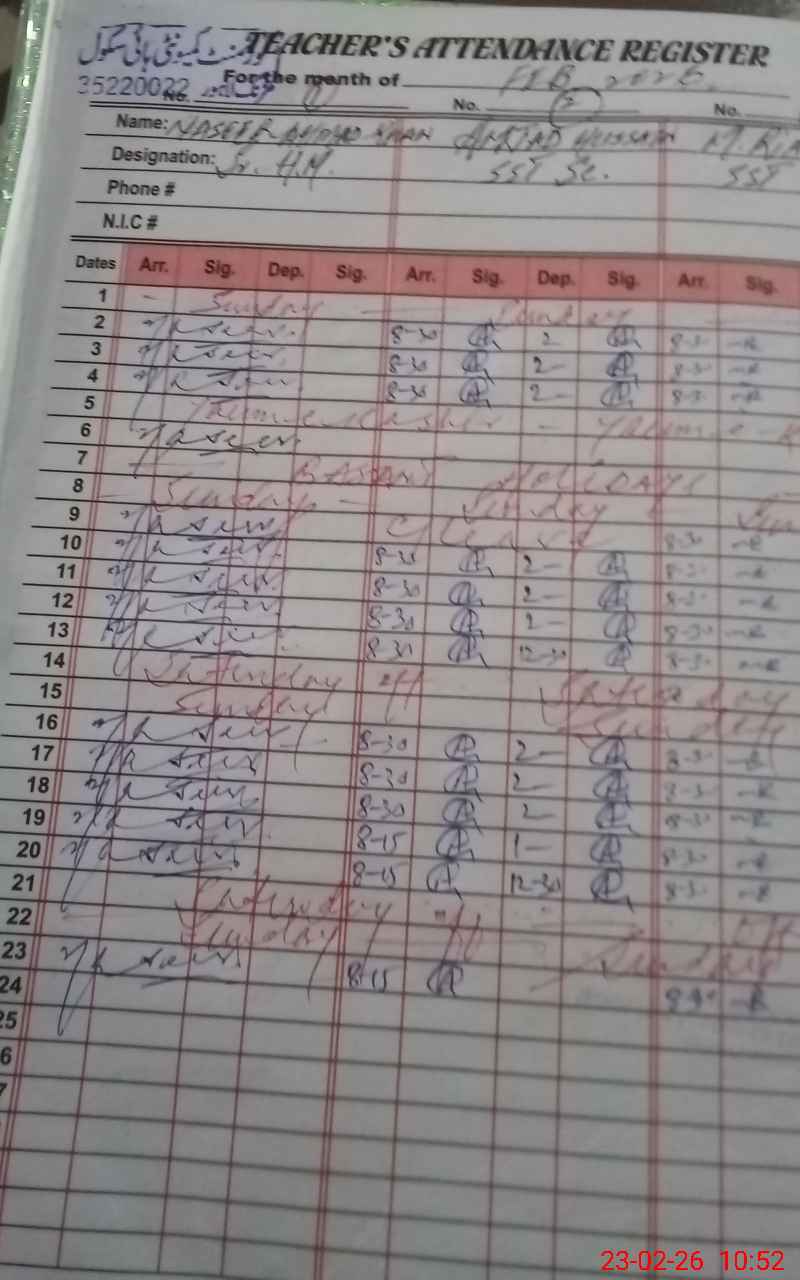 گورنمنٹ کمیونٹی ہائی سکول
TEACHER'S ATTENDANCE REGISTER
35220022
For the month of FEB 2026.
No. No. 2 No.
Name: NASEER AHMAD KHAN AMJAD HUSSAIN M. RIA
Designation: Sr. H.M. SST Sc. SST
Phone #
N.I.C #
Dates Arr. Sig. Dep. Sig. Arr. Sig. Dep. Sig. Arr. Sig.
1 - Sunday Sunday
2 Naseer 8-30 A 2 A 8-30 R
3 Naseer 8-30 A 2- A 8-30 R
4 Naseer 8-30 A 2- A 8-30 R
5 Youm-e-Kashmir - Youm-e-K
6 Naseer
7 BASANT HOLIDAYS
8 Sunday - Sunday Sun
9 Naseer C/Leave 8-30 R
10 Naseer 8-30 A 2- A 8-30 R
11 Naseer 8-30 A 2- A 8-30 R
12 Naseer 8-30 A 2- A 8-30 R
13 Naseer 8-30 A 12-30 A 8-30 R
14 Saturday off Saturday
15 Sunday Sunday
16 Naseer 8-30 A 2- A 8-30 R
17 Naseer 8-30 A 2- A 8-30 R
18 Naseer 8-30 A 2- A 8-30 R
19 Naseer 8-15 A 1- A 8-30 R
20 Naseer 8-15 A 12-30 A 8-30 R
21 Saturday off off
22 Sunday Sunday
23 Naseer 8-15 A 8-30 R
24
25
6
7
23-02-26 10:52